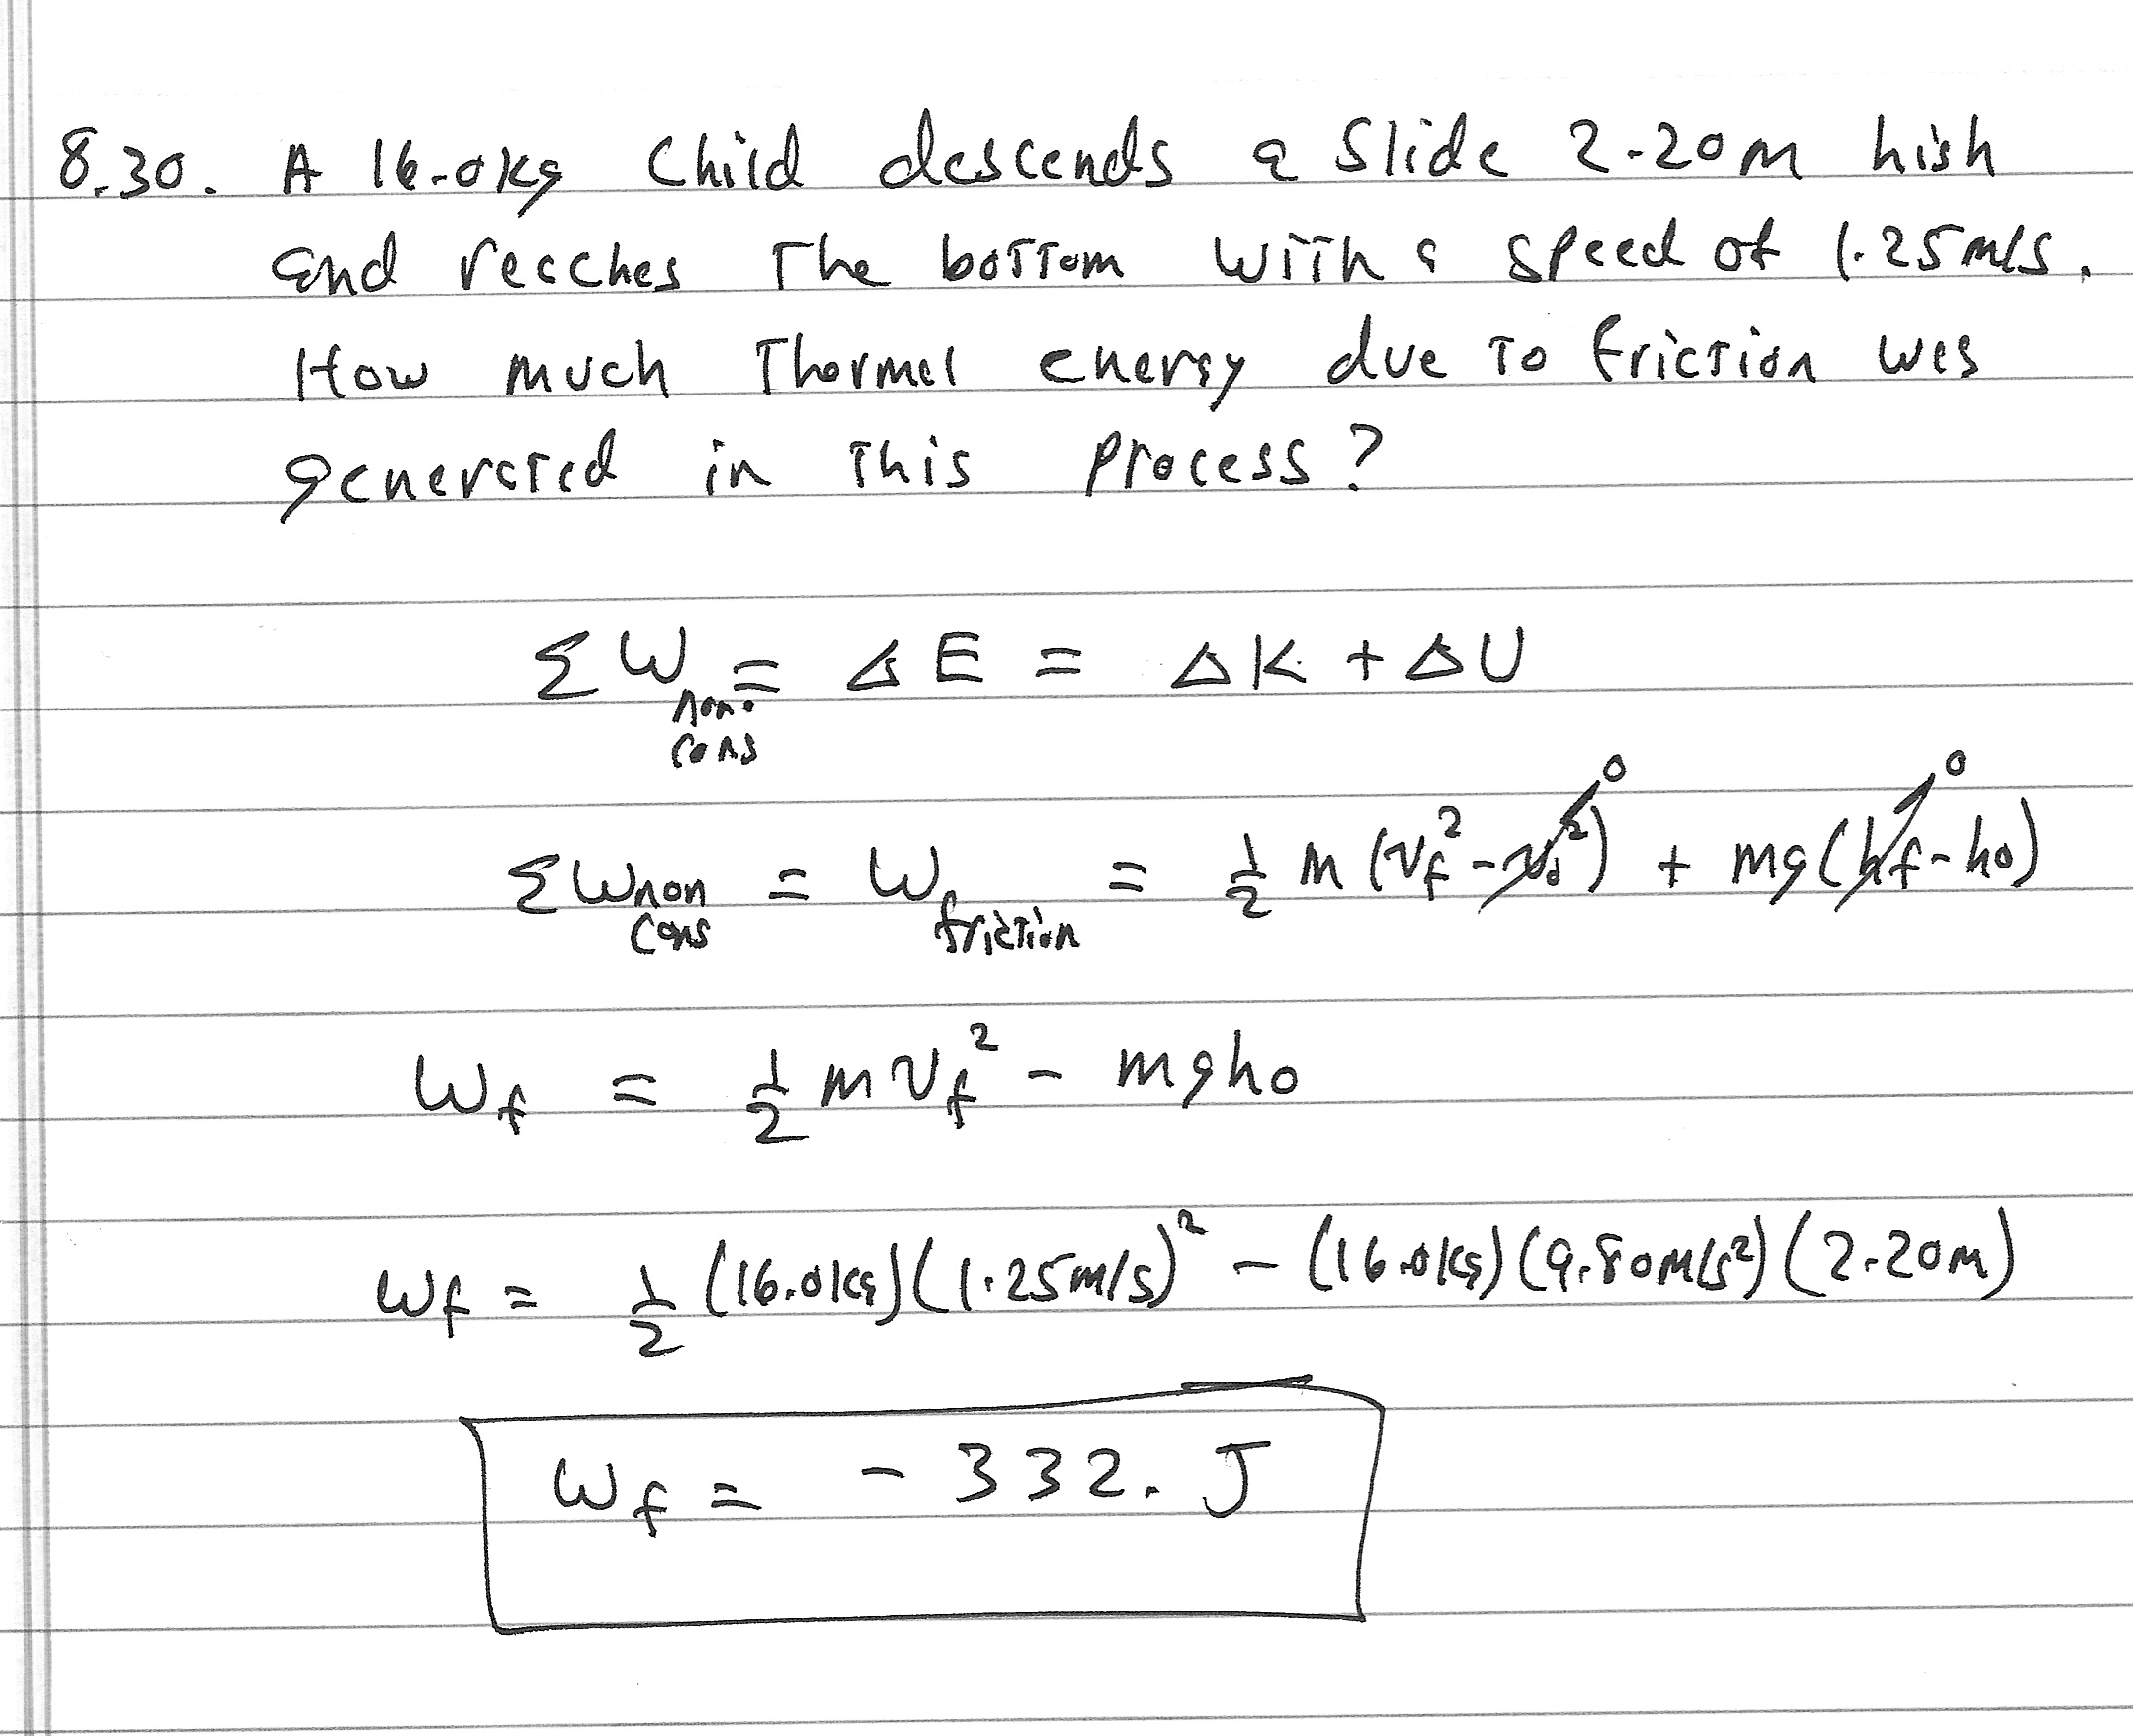 8.30. A 16.0kg Child descends a Slide 2.20m high
and reaches The bottom with a speed of 1.25m/s.
How much Thermal energy due to friction was
generated in this process?
ΣW non. cons = ΔE = ΔK + ΔU
ΣW non cons = W friction = 1/2 m (vf² - v₀²) + mg(hf - ho)
0 0
Wf = 1/2 m vf² - mgho
Wf = 1/2 (16.0kg)(1.25m/s)² - (16.0kg)(9.80m/s²)(2.20m)
Wf = -332. J